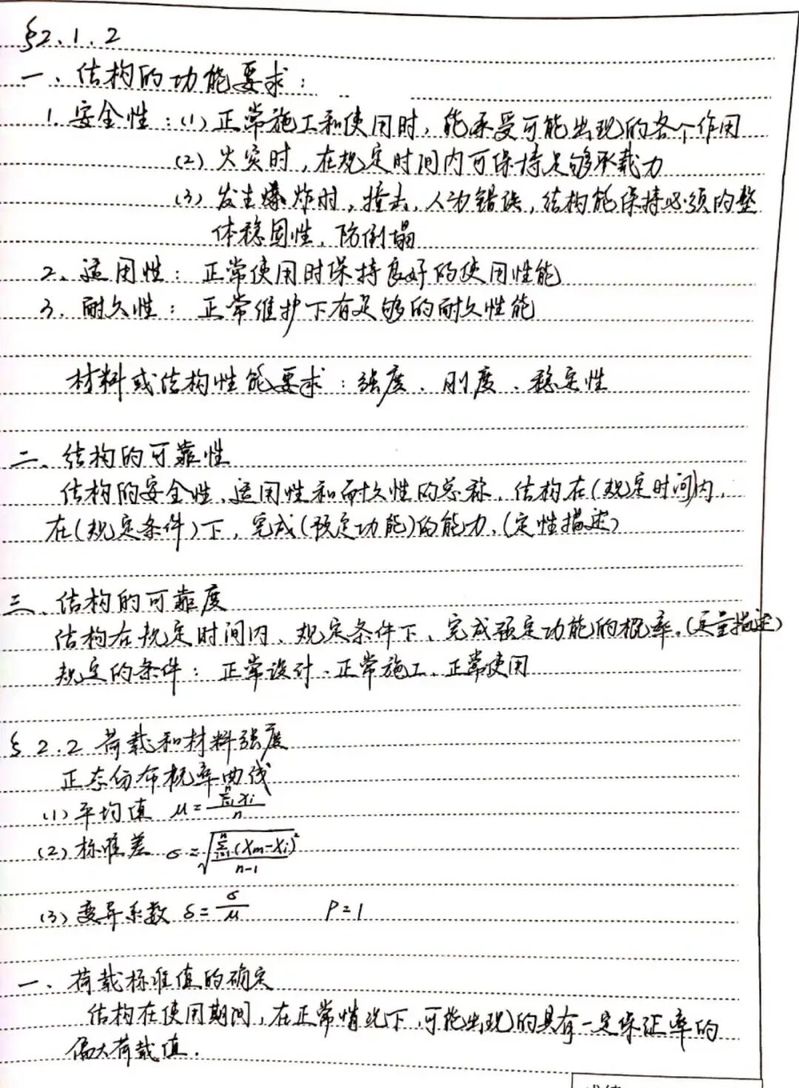 §2.1.2
一、结构的功能要求：
1. 安全性：(1) 正常施工和使用时，能承受可能出现的各个作用
(2) 火灾时，在规定时间内可保持足够承载力
(3) 发生爆炸时，撞击，人为错误，结构能保持必须的整
体稳固性，防倒塌
2、适用性：正常使用时保持良好的使用性能
3、耐久性：正常维护下有足够的耐久性能
材料或结构性能要求：强度、刚度、稳定性
二、结构的可靠性
结构的安全性、适用性和耐久性的总称，结构在(规定时间)内，
在(规定条件)下，完成(预定功能)的能力。(定性描述)
三、结构的可靠度
结构在规定时间内、规定条件下、完成预定功能的概率。(定量描述)
规定的条件：正常设计、正常施工、正常使用
§2.2 荷载和材料强度
正态分布概率曲线
(1) 平均值 μ=\frac{\sum_{i=1}^{n} x_i}{n}
(2) 标准差 σ=\sqrt{\frac{\sum_{i=1}^{n}(x_m-x_i)^2}{n-1}}
(3) 变异系数 δ=\frac{σ}{μ} P=1
一、荷载标准值的确定
结构在使用期间，在正常情况下，可能出现的具有一定保证率的
偏大荷载值．